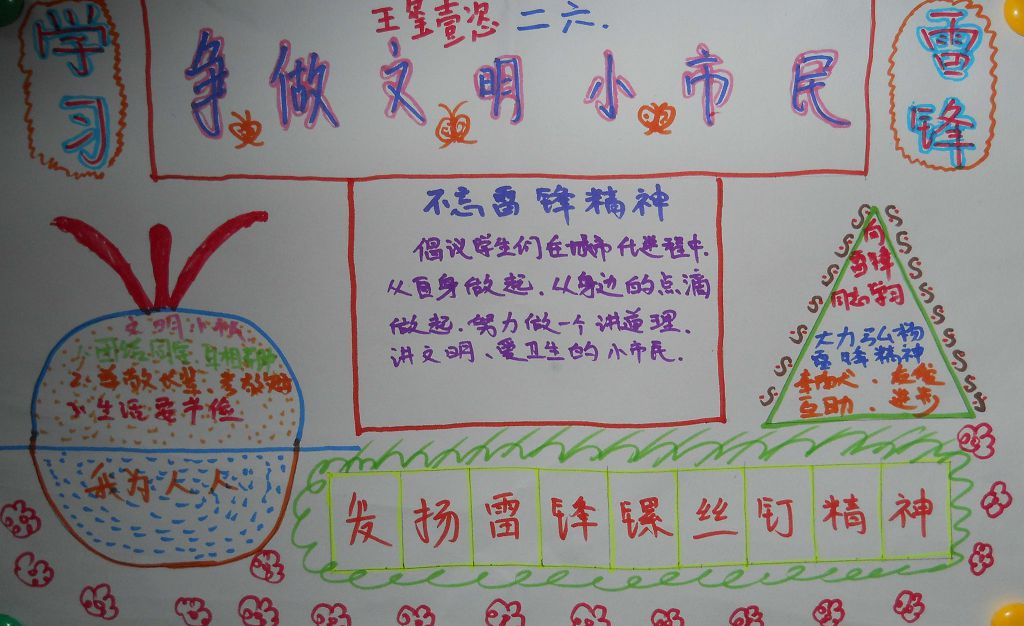 学习
王玺壹恣 二六.
争做文明小市民
雷锋
不忘雷锋精神
倡议学生们在城市化进程中.
从自身做起.从身边的点滴
做起.努力做一个讲道理.
讲文明、爱卫生的小市民.
向
雷锋
同志学习
大力弘杨
雷锋精神
互助.进步
文明小
1.团结同学.互相帮助
2.尊敬长辈.孝敬父母
3.生活要节俭
我为人人
发扬雷锋螺丝钉精神